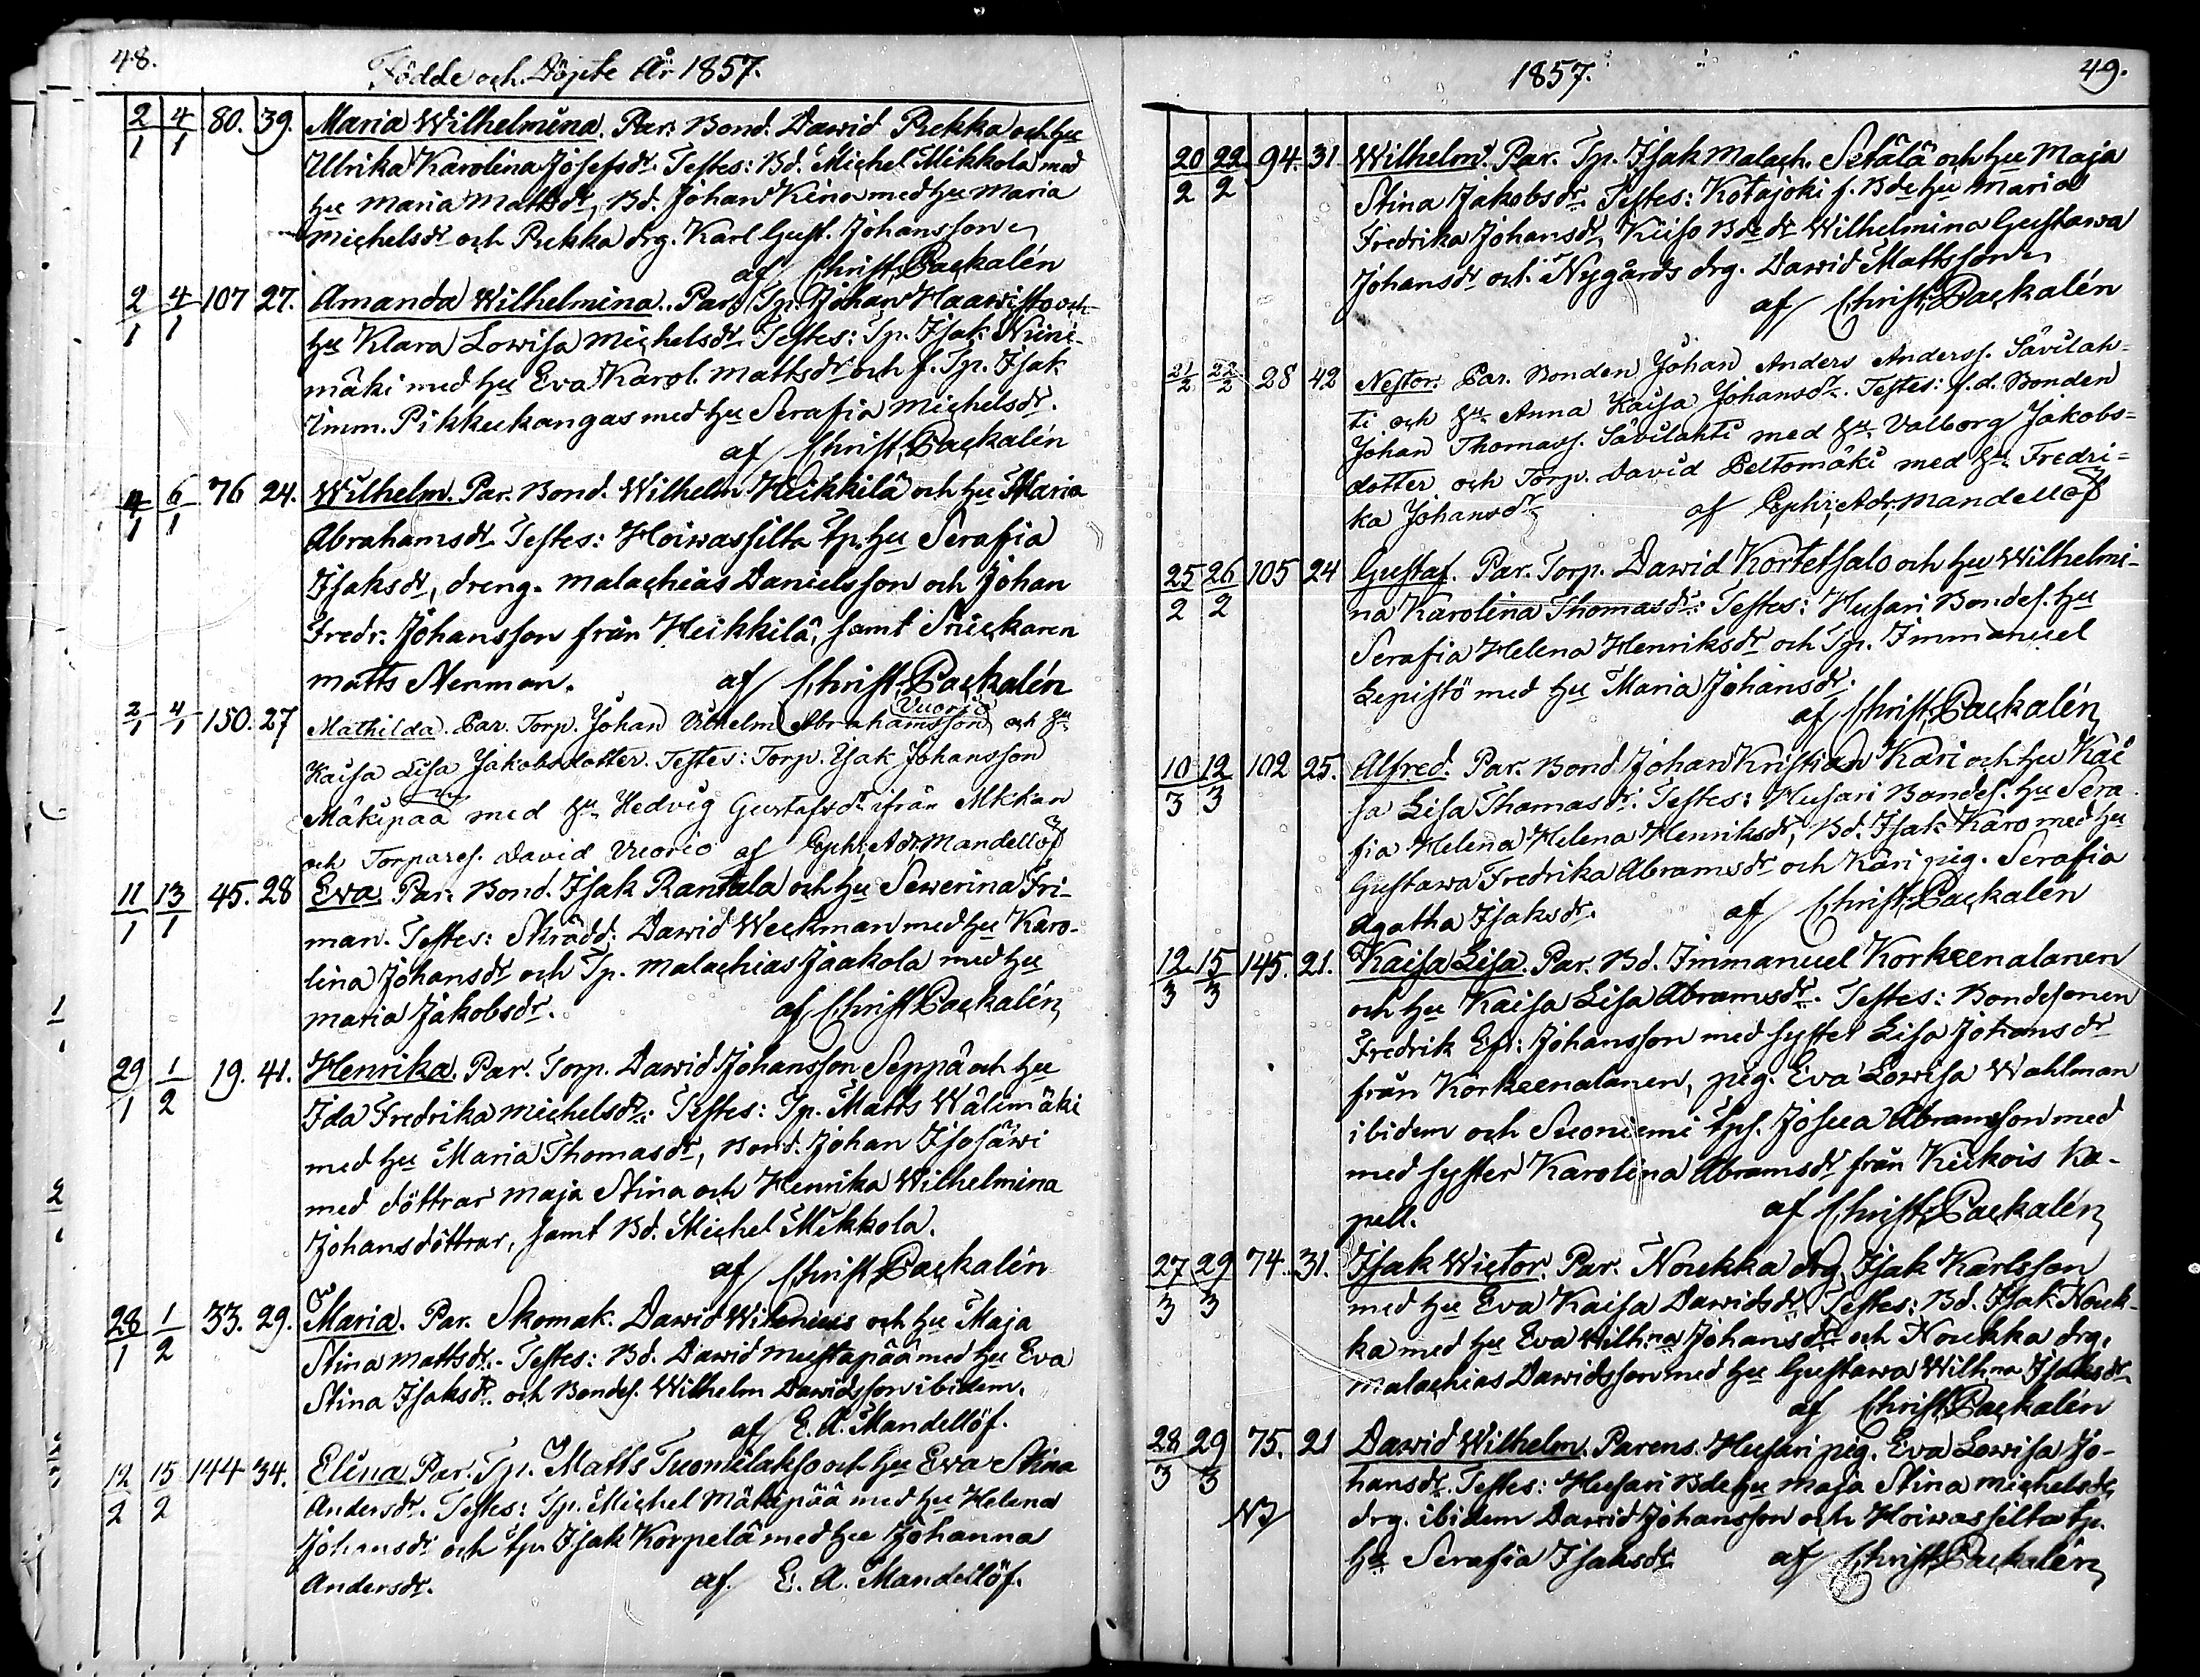 48.
Födde och Döpte År 1857.
2/1 4/1 80. 39. Maria Wilhelmina. Par. Bond. Dawid Pukka och hu
Ulrika Karolina Josefsdr. Testes: Bd. Michel Mikkola med
hu Maria Mattsdr, Bd. Johan Keino med hu Maria
Michelsdr och Pukka drg. Karl Gust. Johansson
af Christ. Packalén
2/1 4/1 107 27. Amanda Wilhelmina. Par. Tp. Johan Haawisto och
hu Klara Lowisa Michelsdr. Testes: Tp. Isak Niini-
mäki med hu Eva Karol. Mattsdr och f. Tp. Isak
Imm. Pikkukangas med hu Serafia Michelsdr.
af Christ. Packalén
4/1 6/1 76 24. Wilhelm. Par. Bond. Wilhelm Heikkilä och hu Maria
Abrahamsdr. Testes: Hoiwassilta Tp. hu Serafia
Isaksdr, dreng. Malachias Danielsson och Johan
Fredr. Johansson från Heikkilä, samt Snickaren
Matts Nenman. af Christ. Packalén
Vuorio
2/1 4/1 150. 27 Mathilda. Par. Torp. Johan Vilhelm Abrahamsson och hu
Kaisa Lisa Jakobsdotter. Testes: Torp. Isak Johansson
Mäkipää med hu Hedvig Gustafsdr ifrån Alkkan
och Torpares. David Vuorio af Ephr. Adr. Mandellöf
11/1 13/1 45. 28 Eva Par. Bond. Isak Rantala och hu Sewerina Fri-
man. Testes: Skrädd. Dawid Weckman med hu Karo-
lina Johansdr och Tp. Malachias Jaakola med hu
Maria Jakobsdr. af Christ. Packalén
29/1 1/2 19. 41. Henrika. Par. Torp. Dawid Johansson Seppä och hu
Ida Fredrika Michelsdr. Testes: Tp. Matts Wälimäki
med hu Maria Thomasdr, Bond. Johan Isojäwi
med döttrar Maja Stina och Henrika Wilhelmina
Johansdöttrar, samt Bd. Michel Mikkola.
af Christ. Packalén
28/1 1/2 33. 29. Maria. Par. Skomak. Dawid Wilenius och hu Maja
Stina Mattsdr. Testes: Bd. Dawid Mustapää med hu Eva
Stina Isaksdr. och Bondes. Wilhelm Dawidsson ibidem.
af E. A. Mandellöf.
12/2 15/2 144 34. Elina Par. Tp. Matts Tuomilakso och hu Eva Stina
Andersdr. Testes: Tp. Michel Mäkipää med hu Helena
Johansdr och tp. Isak Korpelä med hu Johanna
Andersdr. af. E. A. Mandellöf.
1857. 49.
20/2 22/2 94. 31 Wilhelm. Par. Tp. Isak Malach. Setälä och hu Maja
Stina Jakobsdr. Testes: Kotajoki f. Bde hu Maria
Fredrika Johansdr, Keiso Bdedr Wilhelmina Gustawa
Johansdr och Nygårds drg. Dawid Mattsson
af Christ. Packalén
21/2 22/2 28 42 Nestor. Par. Bonden Johan Anders Anderss. Savilah-
ti och hu Anna Kaisa Johansdr. Testes: f.d. Bonden
Johan Thomass. Savilahti med hu Valborg Jakobs-
dotter och Torp. David Peltomäki med hu Fredri-
ka Johansdr af Ephr. Adr. Mandellöf
25/2 26/2 105 24 Gustaf. Par. Torp. Dawid Kortetsalo och hu Wilhelmi-
na Karolina Thomasdr. Testes: Husari Bondes. hu
Serafia Helena Henriksdr och Tp. Immanuel
Lepistö med hu Maria Johansdr.
af Christ. Packalén
10/3 12/3 102 25. Alfred. Par. Bond Johan Kristian Kari och hu Kai
sa Lisa Thomasdr. Testes: Husari Bondes. hu Sera
fia Helena Helena Henriksdr, Bd. Isak Karo med hu
Gustawa Fredrika Abramsdr och Kari pig. Serafia
Agatha Isaksdr. af Christ. Packalén
12/3 15/3 145. 21. Kaisa Lisa. Par. Bd. Immanuel Korkeenalanen
och hu Kaisa Lisa Abramsdr. Testes: Bondesonen
Fredrik Efr. Johansson med syster Lisa Johansdr
från Korkeenalanen, pig. Eva Lowisa Wahlman
ibidem och Suoniemi tps. Josua Abramsson med
med syster Karolina Abramsdr från Kiikois Ka-
pell. af Christ. Packalén
27/3 29/3 74. 31. Isak Wictor. Par. Noukka drg. Isak Karlsson
med hu Eva Kaisa Dawidsdr. Testes: Bd. Isak Nouk-
ka med hu Eva Wilh:na Johansdr och Noukka drg.
Malachias Dawidsson med hu Gustawa Wilh:na Isaksdr
af Christ. Packalén
28/3 29/3 75. 21 Dawid Wilhelm. Parens. Husari pig. Eva Lowisa Jo-
hansdr. Testes: Husari Bde hu Maja Stina Michelsdr,
NB drg. ibidem Dawid Johansson och Hoiwassilta tp.
hu Serafia Isaksdr af Christ. Packalén